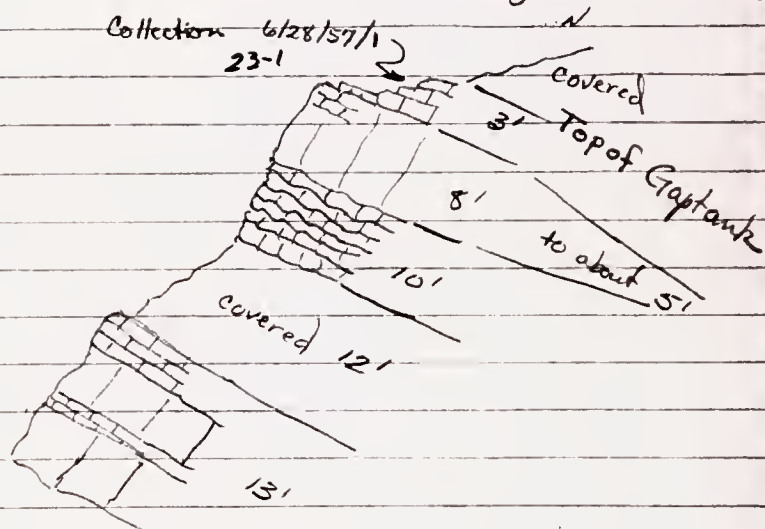 N
Collection 6/28/57/1
23-1
covered
3'
Top of Gaptank
8'
to about 5'
10'
covered 12'
13'